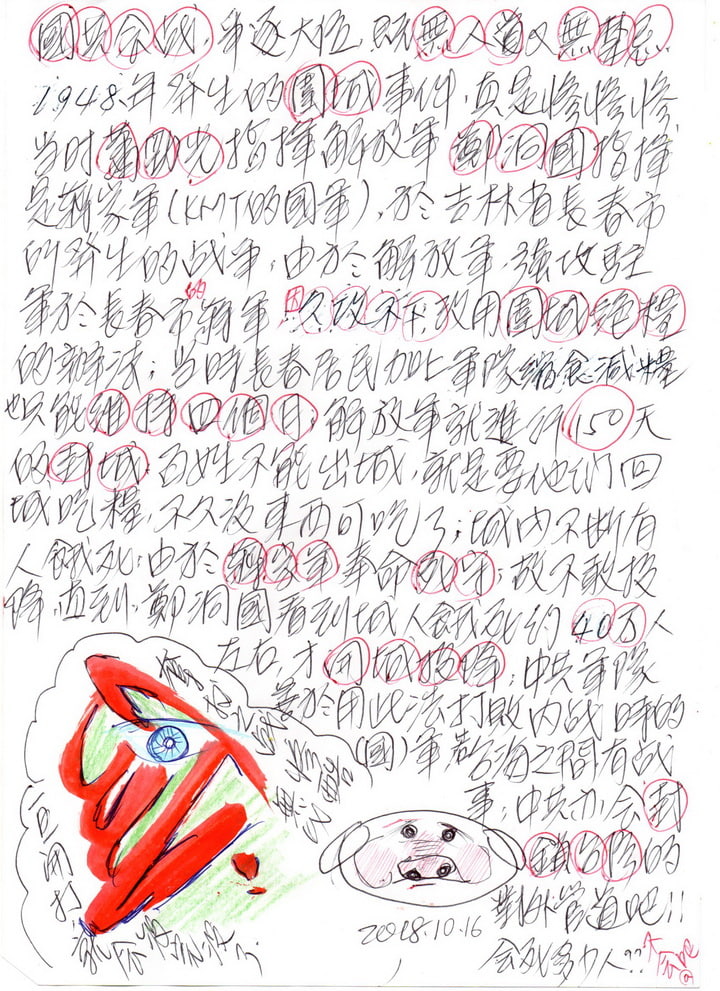 國共會战,争逐大位,既無人道又無禁忌.
1948年發生的圍城事件,真是慘慘慘,
当时蕭勁光指揮解放軍 鄭洞國指揮
是新家軍(KMT的國軍),於吉林省長春市
所發生的战争,由於解放軍 強攻駐
軍於長春市的新軍 因久攻不下,改用圍城絕糧
的辦法;当時長春居民加上軍隊縮食減糧
也只能維持四個月,解放軍就進行150天
的封城,百姓不能出城,就是要他們回
城吃糧,不久沒東西可吃了;城內不斷有
人餓死,由於新家軍奉命死守;故不敢投
降,直到,鄭洞國看到城人餓死約40万人
左右,才開城投降;中共軍隊
善於用此法打敗內战時的
(國)軍 若台海之間有战
事;中共亦会封
鎖台灣的
對外管道吧!!
会死多少人??
一旦開打
2018.10.16